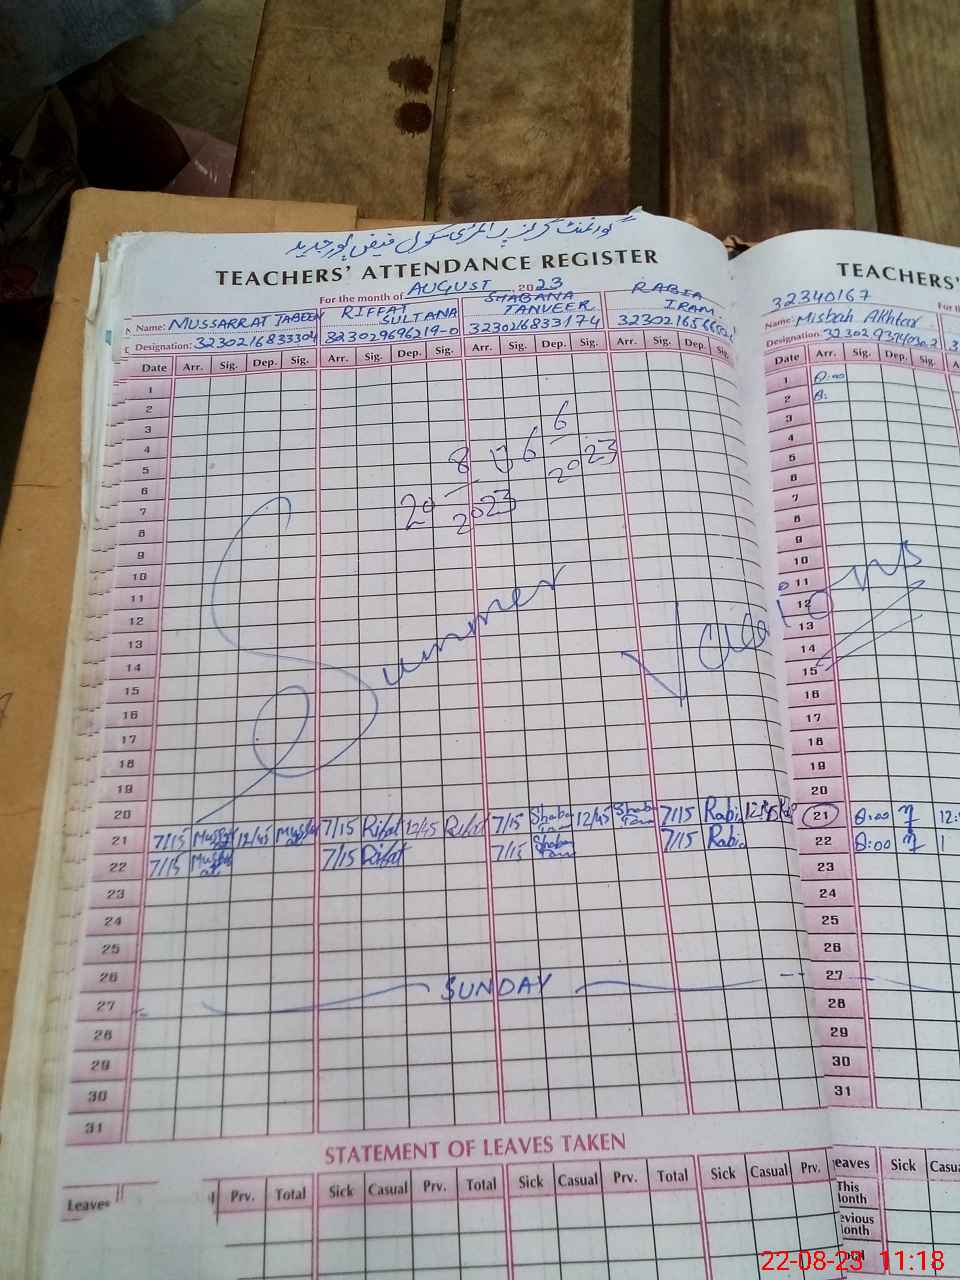 گورنمنٹ گرلز پرائمری سکول فیض پور جدید
TEACHERS' ATTENDANCE REGISTER
For the month of AUGUST, 2023
Name: MUSSARRAT JABEEN RIFFAT SULTANA SHABANA TANVEER RABIA IRAM
Designation: 3230216833304 323029696219-0 3230216833174
Date Arr. Sig. Dep. Sig. Arr. Sig. Dep. Sig. Arr. Sig. Dep. Sig. Arr. Sig. Dep. Sig.
1
2
3
4
5
6
7
8
9
10
11
12
13
14
15
16
17
18
19
20
21 7/15 12/45 7/15 Rifat 12/45 Rifat 7/15 Shaba Tan 12/45 Shaba Tan 7/15 Rabi 12/45
22 7/15 7/15 Rifat 7/15 Shaba Tan 7/15 Rabi
23
24
25
26
27 SUNDAY
28
29
30
31
6/6/2023
20/8/2023
Summer Vacations
STATEMENT OF LEAVES TAKEN
Leaves Prv. Total Sick Casual Prv. Total Sick Casual Prv. Total Sick Casual Prv.
TEACHERS'
32340167
Name: Misbah Akhtar
Designation:
Date Arr. Sig. Dep. Sig.
1 8:00
2 8:
3
4
5
6
7
8
9
10
11
12
13
14
15
16
17
18
19
20
21 8:00 12:
22 8:00 1
23
24
25
26
27
28
29
30
31
eaves Sick Casu
This
onth
evious
onth
22-08-23 11:18